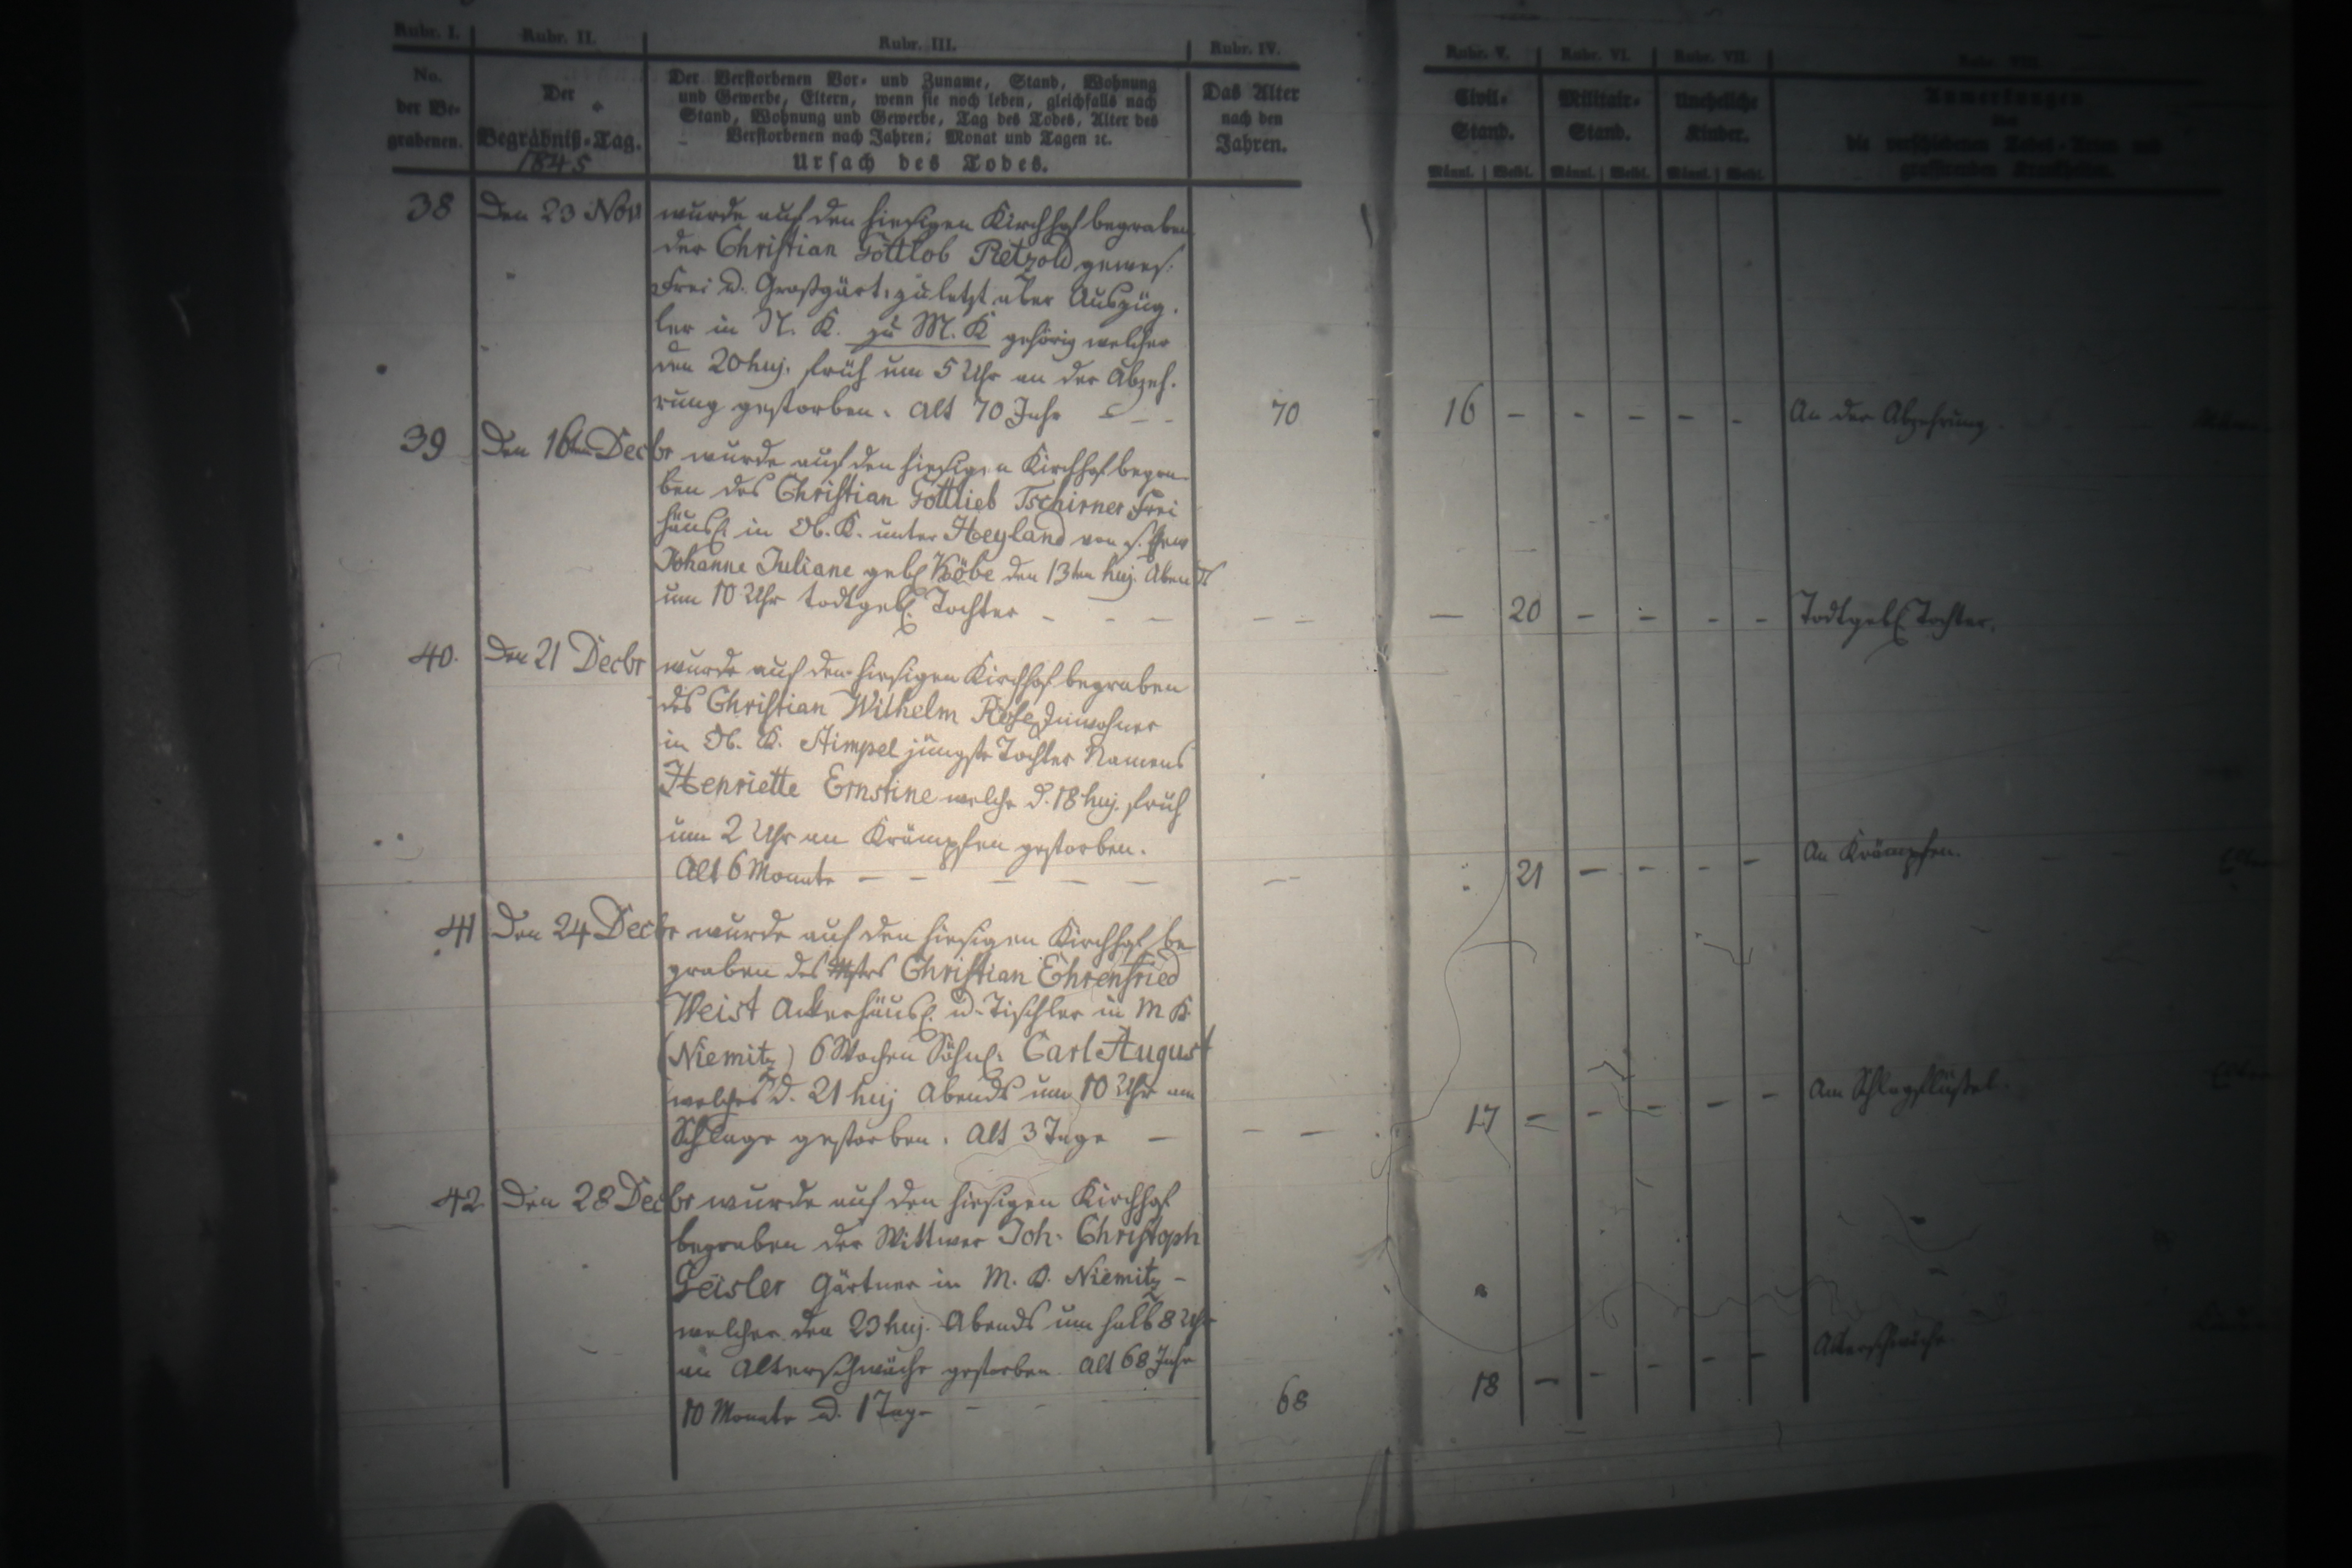 Rubr. I. Rubr. II. Rubr. III. Rubr. IV. Rubr. V. Rubr. VI. Rubr. VII. Rubr. VIII.
No.
der Be-
grabenen.
Der
Begräbniß-Tag.
1845
Der Verstorbenen Vor- und Zuname, Stand, Wohnung
und Gewerbe, Eltern, wenn sie noch leben, gleichfalls nach
Stand, Wohnung und Gewerbe, Tag des Todes, Alter des
Verstorbenen nach Jahren, Monat und Tagen ꝛc.
Ursach des Todes.
Das Alter
nach den
Jahren.
Civil-
Stand.
Männl. Weibl.
Militair-
Stand.
Männl. Weibl.
Uneheliche
Kinder.
Männl. Weibl.
Anmerkungen
über
die verschiedenen Todes-Arten und
grassirenden Krankheiten.
38 Den 23 Nov wurde auf den hiesigen Kirchhof begraben
der Christian Gottlob Pietzold gewes.
Frei u. Großgärt. zuletzt aber Auszüg.
ler in N. K. zu M. K gehörig welcher
den 20 huj. früh um 5 Uhr an der Abzeh.
rung gestorben. Alt 70 Jahr - - - 70 16 - - - - - An der Abzehrung
39 Den 16ten Decbr wurde auf den hiesigen Kirchhof begra-
ben des Christian Gottlieb Tschirner Frei
häusl. in Ob. K. unter Heyland von s. Frau
Johanne Juliane geb. Köbe den 13ten huj. Abends
um 10 Uhr todtgeb. Tochter - - - - - - 20 - - - - Todtgeb. Tochter.
40. Den 21 Decbr wurde auf den hiesigen Kirchhof begraben
des Christian Wilhelm Rose Inwohner
in Ob. K. Stimpel jüngste Tochter Namens
Henriette Ernstine welche d. 18 huj. früh
um 2 Uhr an Krämpfen gestorben.
Alt 6 Monate - - - - - - 21 - - - - An Krämpfen.
41 Den 24 Decbr wurde auf den hiesigen Kirchhof be
graben des Mstrs Christian Ehrenfried
Weist Ackerhäusl. u. Tischler in M K.
(Niemitz) 6 Wochen Söhnl. Carl August
welches d. 21 huj Abends um 10 Uhr am
Schlage gestorben. Alt 3 Tage - - - 17 - - - - - Am Schlagflüssel.
42. Den 28 Decbr wurde auf den hiesigen Kirchhof
begraben der Wittwer Joh. Christoph
Geisler Gärtner in M. K. Niemitz -
welcher den 23 huj. Abends um halb 8 Uhr
an Alterschwäche gestorben. Alt 68 Jahr
10 Monate u. 1 Tag - - - 68 18 - - - - - Alterschwäche.